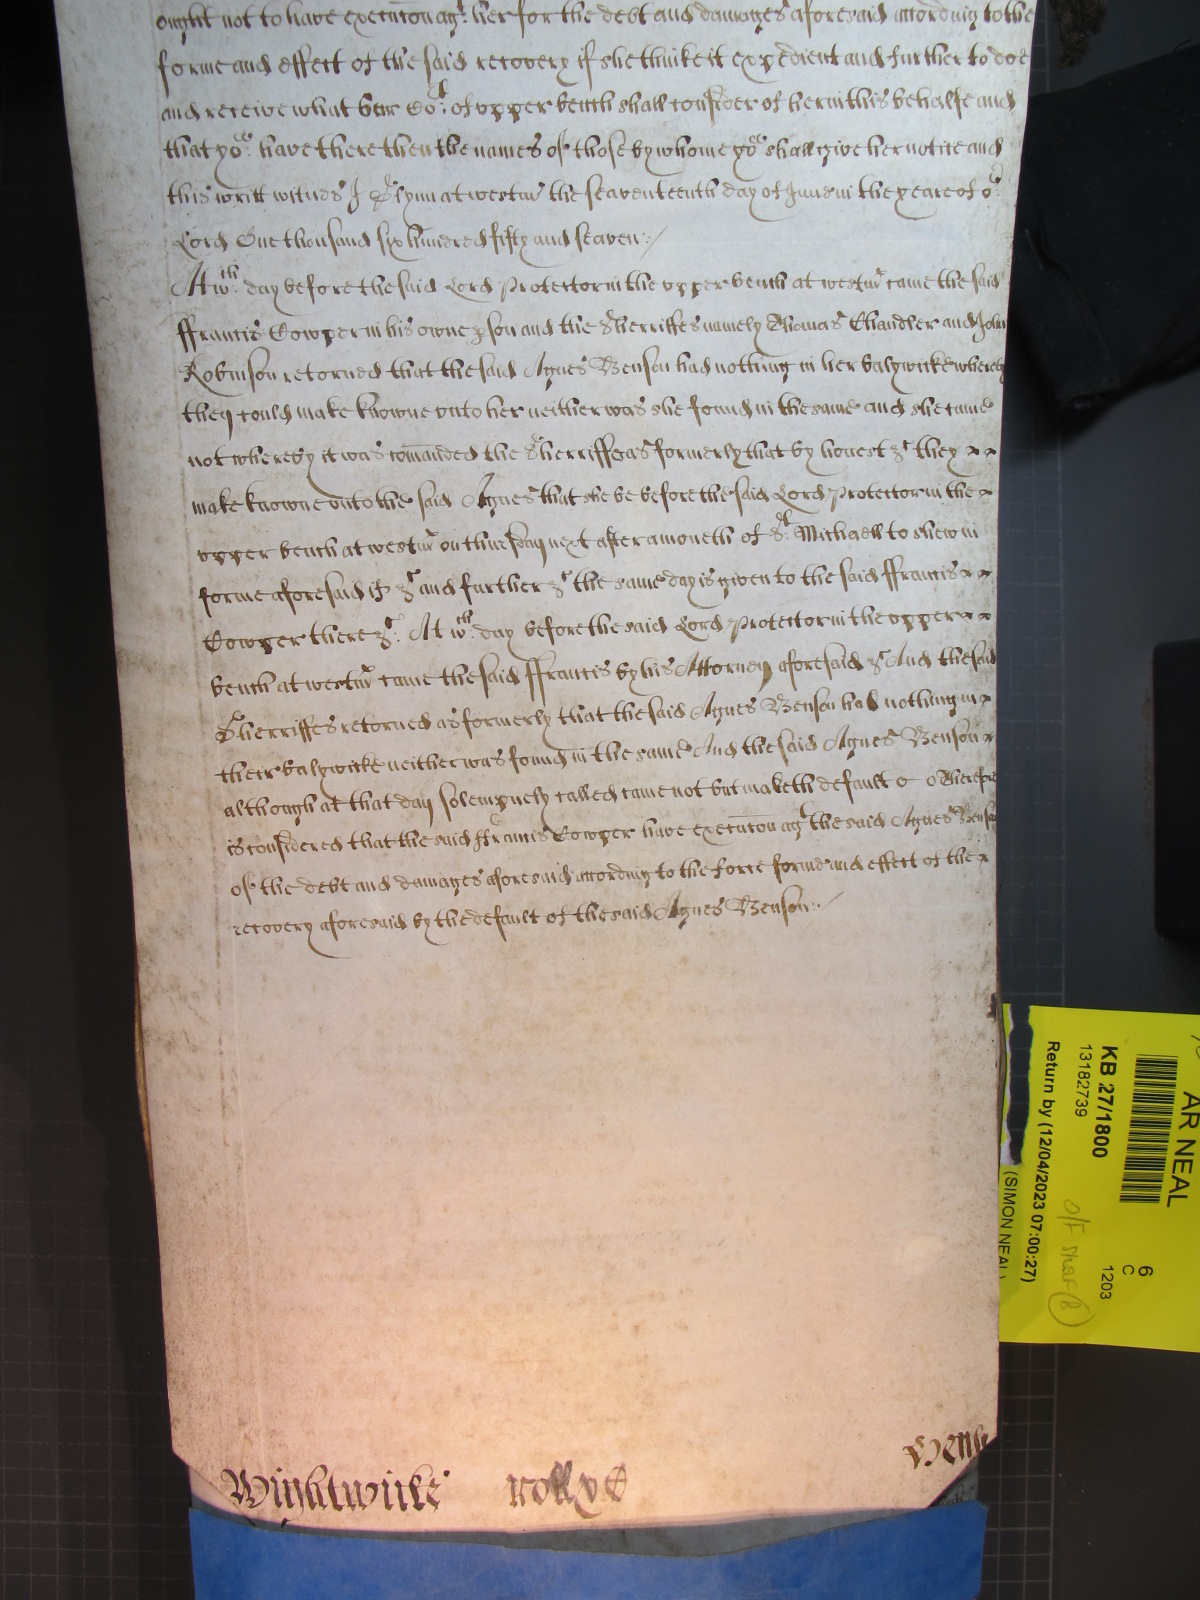 ought not to have execution agt. her for the debt and damages aforesaid according to the
forme and effect of the said recovery if she thinke it expedient and further to doe
and receive what our Cot. of upper bench shall consider of her in this behalfe and
that yoo. have there then the names of those by whome yoo shall give her notice and
this writt witnes J Glynn at westmr the seaventeenth day of June in the yeare of or.
Lord One thousand six hundred fifty and seaven
At wth. day before the said Lord Protector in the upper bench at westmr came the said
ffrancis Cowper in his owne pson and the Sherriffes namely Thomas Chandler and John
Robinson retorned that the said Agnes Benson had nothing in her balywicke whereby
they could make knowne unto her neither was she found in the same and she came
not whereby it was comanded the Sherriffe as formerly that by honest &c they
make knowne unto the said Agnes that she be before the said Lord Protector in the
upper bench at westmr on thursday next after a moneth of St. Michaell to shew in
forme aforesaid if &c and further &c the same day is given to the said ffrancis
Cowper there &c. At wth. day before the said Lord Protector in the upper
bench at westmr came the said ffrancis by his Attorney aforesaid &c And the said
Sherriffes retorned as formerly that the said Agnes Benson had nothing in
their balywicke neither was found in the same And the said Agnes Benson
although at that day solempnely called came not but maketh default Therefore
is considered that the said ffrancis Cowper have execution agt the said Agnes Benson
of the debt and damages aforesaid according to the force forme and effect of the
recovery aforesaid by the default of the said Agnes Benson
Wightwicke roll
AR NEAL
KB 27/1800
13182739
Return by (12/04/2023 07:00:27)
(SIMON NEAL)
6
C
1203